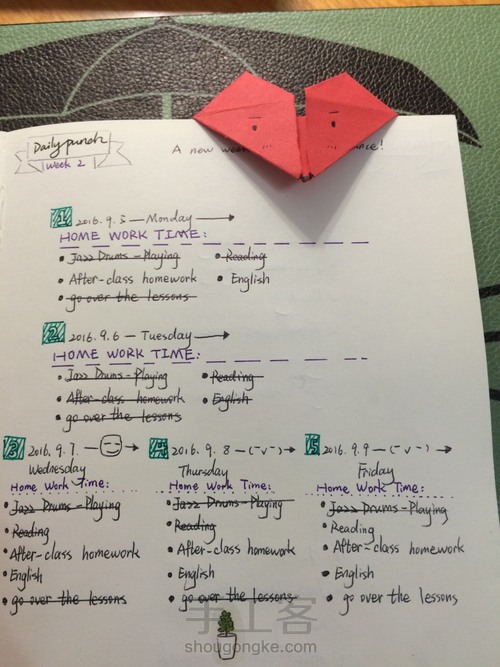 Daily punch
Week 2
A new week
nce!
1 2016.9.5 — Monday
HOME WORK TIME:
• Jazz Drums - Playing • Reading
• After-class homework • English
• go over the lessons
2 2016.9.6 — Tuesday
HOME WORK TIME:
• Jazz Drums - Playing • Reading
• After-class homework • English
• go over the lessons
3 2016.9.7. —
Wednesday
Home Work Time:
• Jazz Drums - Playing
• Reading
• After-class homework
• English
• go over the lessons
4 2016.9.8 — (-v-)
Thursday
Home Work Time:
• Jazz Drums - Playing
• Reading
• After-class homework
• English
• go over the lessons
5 2016.9.9 — (-v-)
Friday
Home Work Time:
• Jazz Drums - Playing
• Reading
• After-class homework
• English
• go over the lessons
手工客
shougongke.com